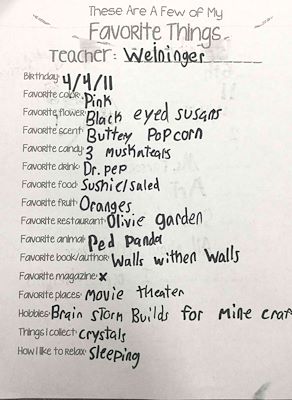 These Are A Few of My
Favorite Things
Teacher: Weininger
Birthday: 4/4/11
Favorite color: Pink
Favorite flower: Black eyed susans
Favorite scent: Buttery Popcorn
Favorite candy: 3 Muskateers
Favorite drink: Dr. pep
Favorite food: Sushi c/saled
Favorite fruit: Oranges
Favorite Restaurant: Olivie garden
Favorite animal: Red Panda
Favorite book/author: Walls withen Walls
Favorite magazine: x
Favorite places: Movie theater
Hobbies: Brain storm Builds for mine craf
Things I collect: Crystals
How I like to relax: Sleeping